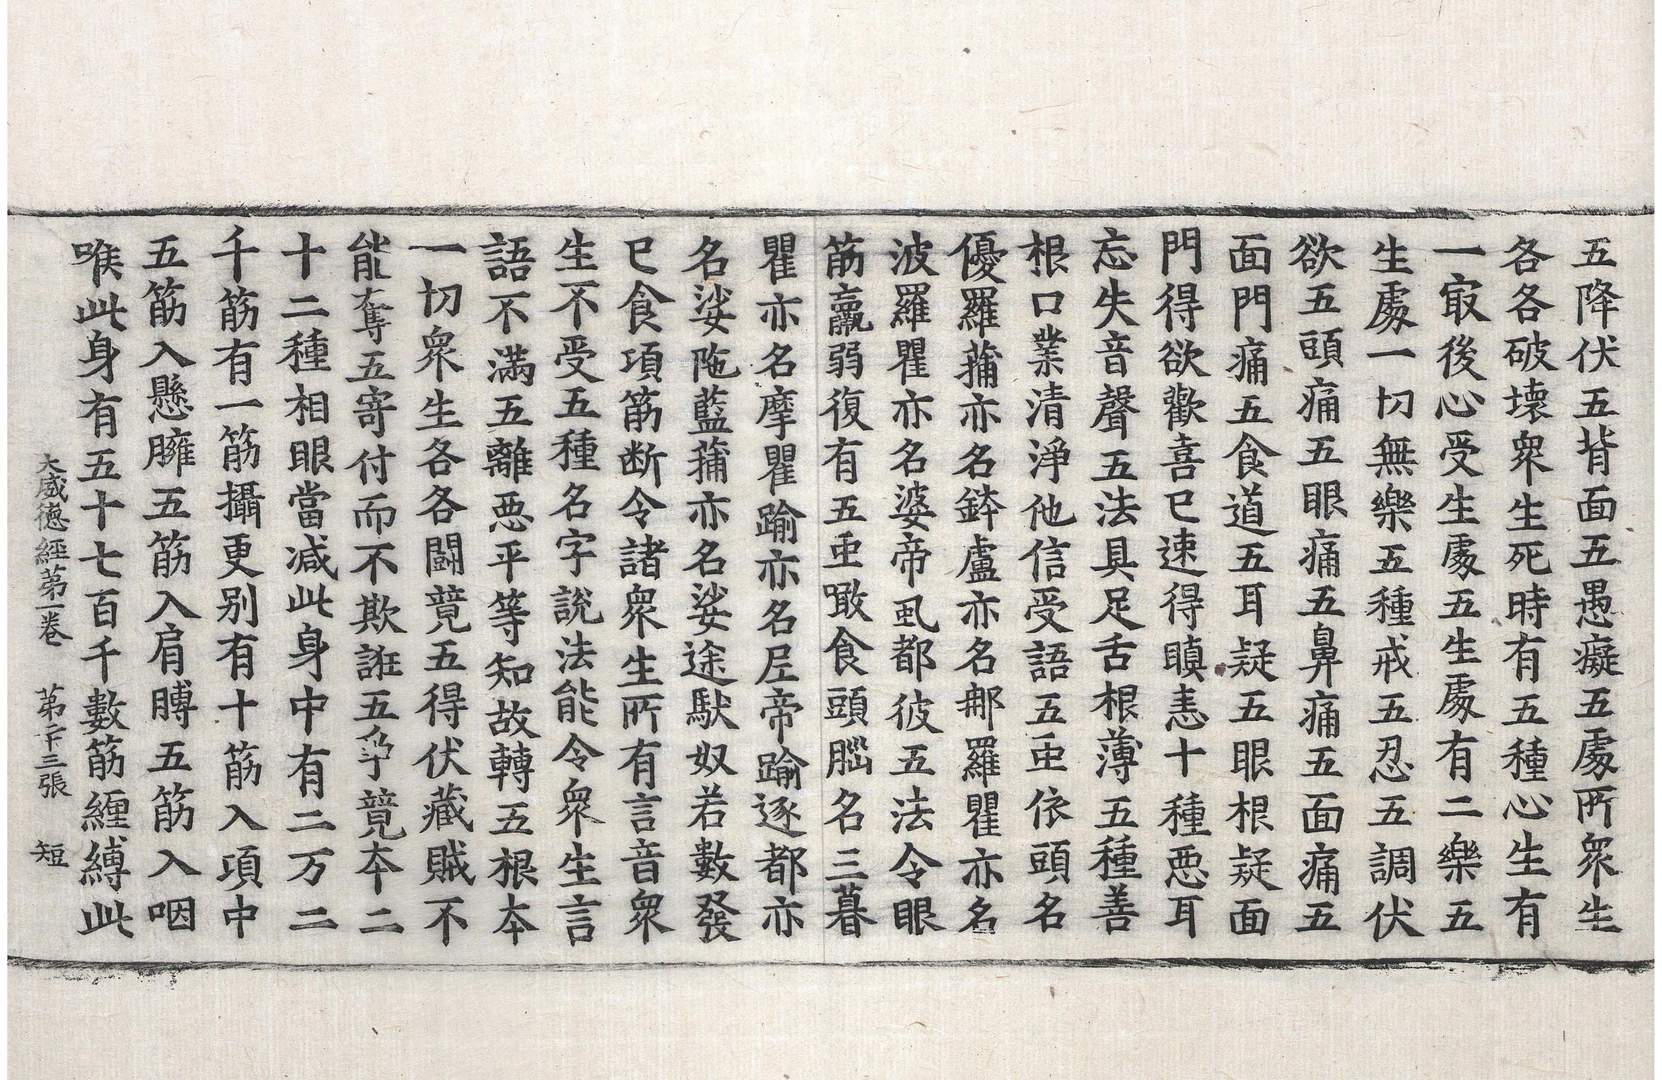 五降伏五背面五愚癡五處所衆生
各各破壞衆生死時有五種心生有
一㝡後心受生處五生處有二樂五
生處一切無樂五種戒五忍五調伏
欲五頭痛五眼痛五鼻痛五面痛五
面門痛五食道五耳疑五眼根疑面
門得欲歡喜已速得瞋恚十種惡耳
忘失音聲五法具足舌根薄五種善
根口業清淨他信受語五䖝依頭名
優羅蒱亦名鉢盧亦名那羅瞿亦名
波羅瞿亦名婆帝虱都彼五法令眼
筋羸弱復有五䖝噉食頭腦名三暮
瞿亦名摩瞿踰亦名居帝踰逐都亦
名娑陁藍蒱亦名娑途馱奴若數發
已食項筋断令諸衆生所有言音衆
生不受五種名字說法能令衆生言
語不滿五離惡平等知故轉五根夲
一切衆生各各闘竟五得伏藏賊不
能奪五寄付而不欺誑五爭竟夲二
十二種相眼當減此身中有二万二
千筋有一筋攝更别有十筋入項中
五筋入懸臃五筋入肩髆五筋入咽
喉此身有五十七百千數筋纏縛此
大威德經第一卷 第二十三張 短